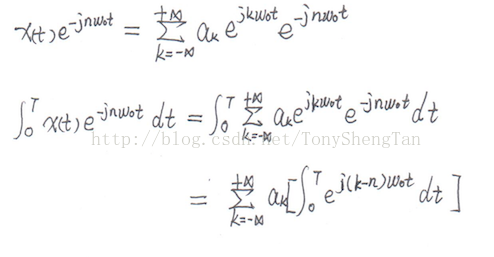 x(t)e^{-jnw₀t} = \sum_{k=-∞}^{+∞} a_k e^{jkw₀t} e^{-jnw₀t}
\int_0^T x(t)e^{-jnw₀t} dt = \int_0^T \sum_{k=-∞}^{+∞} a_k e^{jkw₀t} e^{-jnw₀t} dt
http://blog.csdn.net/TonyShengTan
= \sum_{k=-∞}^{+∞} a_k [\int_0^T e^{j(k-n)w₀t} dt]